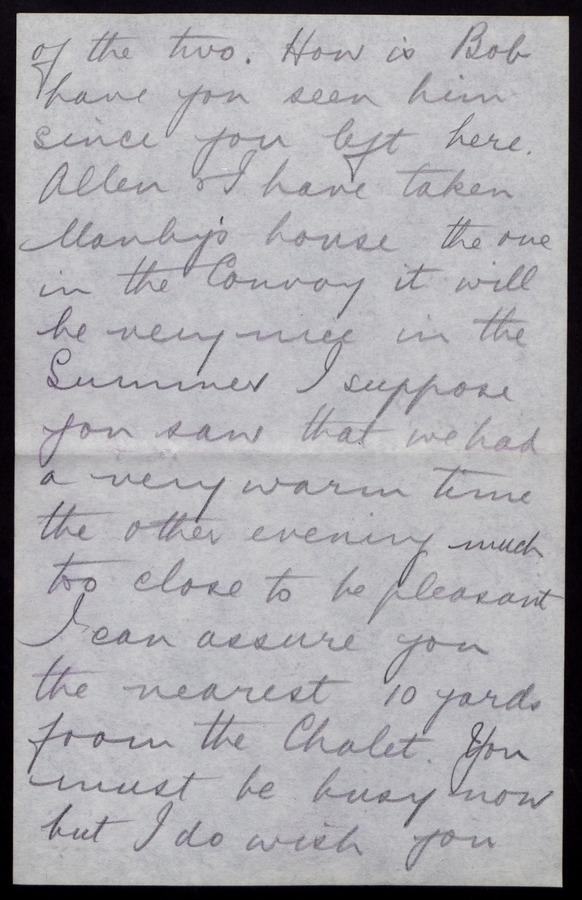 of the two. How is Bob
have you seen him
since you left here.
Allen & I have taken
Manby's house the one
in the Convoy it will
be very nice in the
Summer I suppose
you saw that we had
a very warm time
the other evening much
too close to be pleasant
I can assure you
the nearest 10 yards
from the Chalet. You
must be busy now
but I do wish you